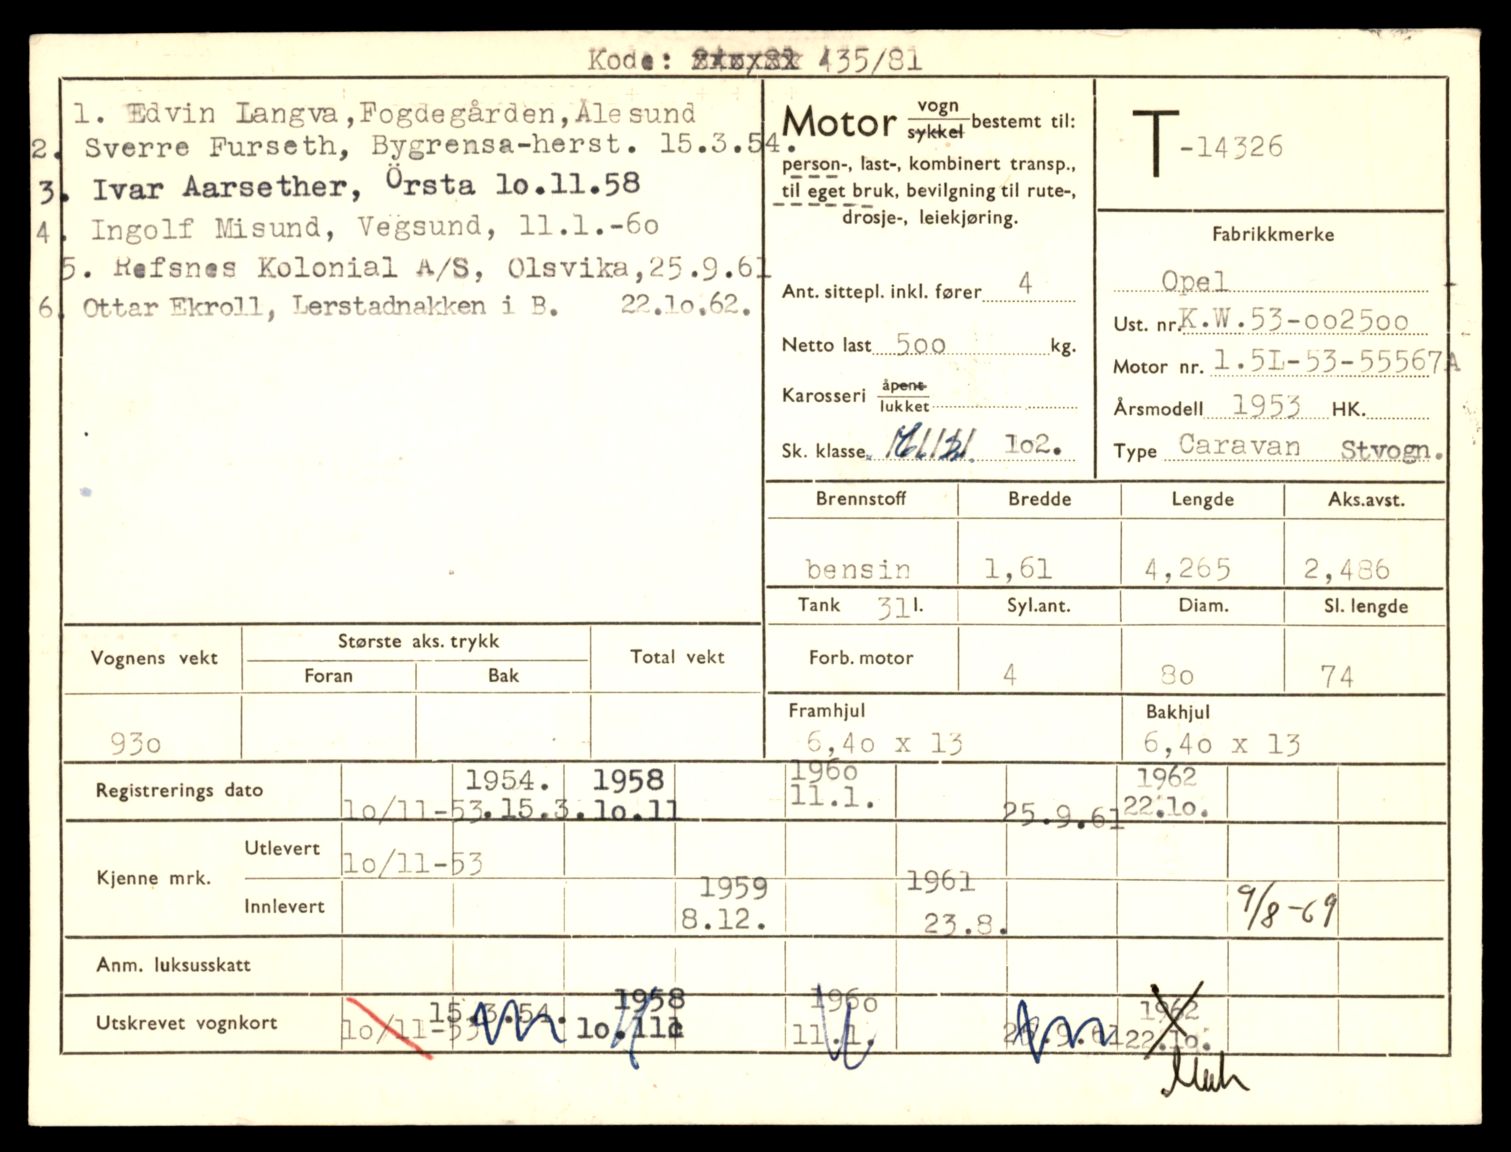 Kode: 435/81
1. Edvin Langva,Fogdegården,Ålesund
2. Sverre Furseth, Bygrensa-herst. 15.3.54.
3. Ivar Aarsether, Örsta 1o.11.58
4. Ingolf Misund, Vegsund, 11.1.-6o
5. Refsnes Kolonial A/S, Olsvika,25.9.61
6. Ottar Ekroll, Lerstadnakken i B. 22.1o.62.
Motor vogn sykkel bestemt til:
person-, last-, kombinert transp.,
til eget bruk, bevilgning til rute-,
drosje-, leiekjøring.
Ant. sittepl. inkl. fører 4
Netto last 5oo kg.
Karosseri åpent lukket
Sk. klasse 1o2.
T-14326
Fabrikkmerke
Opel
Ust. nr. K.W.53-oo25oo
Motor nr. 1.5L-53-55567A
Årsmodell 1953 HK.
Type Caravan Stvogn.
Brennstoff Bredde Lengde Aks.avst.
bensin 1,61 4,265 2,486
Tank 31 l. Syl.ant. Diam. Sl. lengde
Forb. motor 4 8o 74
Framhjul Bakhjul
6,4o x 13 6,4o x 13
Vognens vekt Største aks. trykk Total vekt
Foran Bak
93o
1954. 1958 196o 1962
Registrerings dato 1o/11-53. 15.3. 1o.11 11.1. 25.9.61 22.1o.
Kjenne mrk.
Utlevert 1o/11-53
1959 1961
Innlevert 8.12. 23.8. 9/8-69
Anm. luksusskatt
15.3.54. 1958 196o 1962
Utskrevet vognkort 1o/11-53 1o.11 11.1. 25.9.61 22.1o.